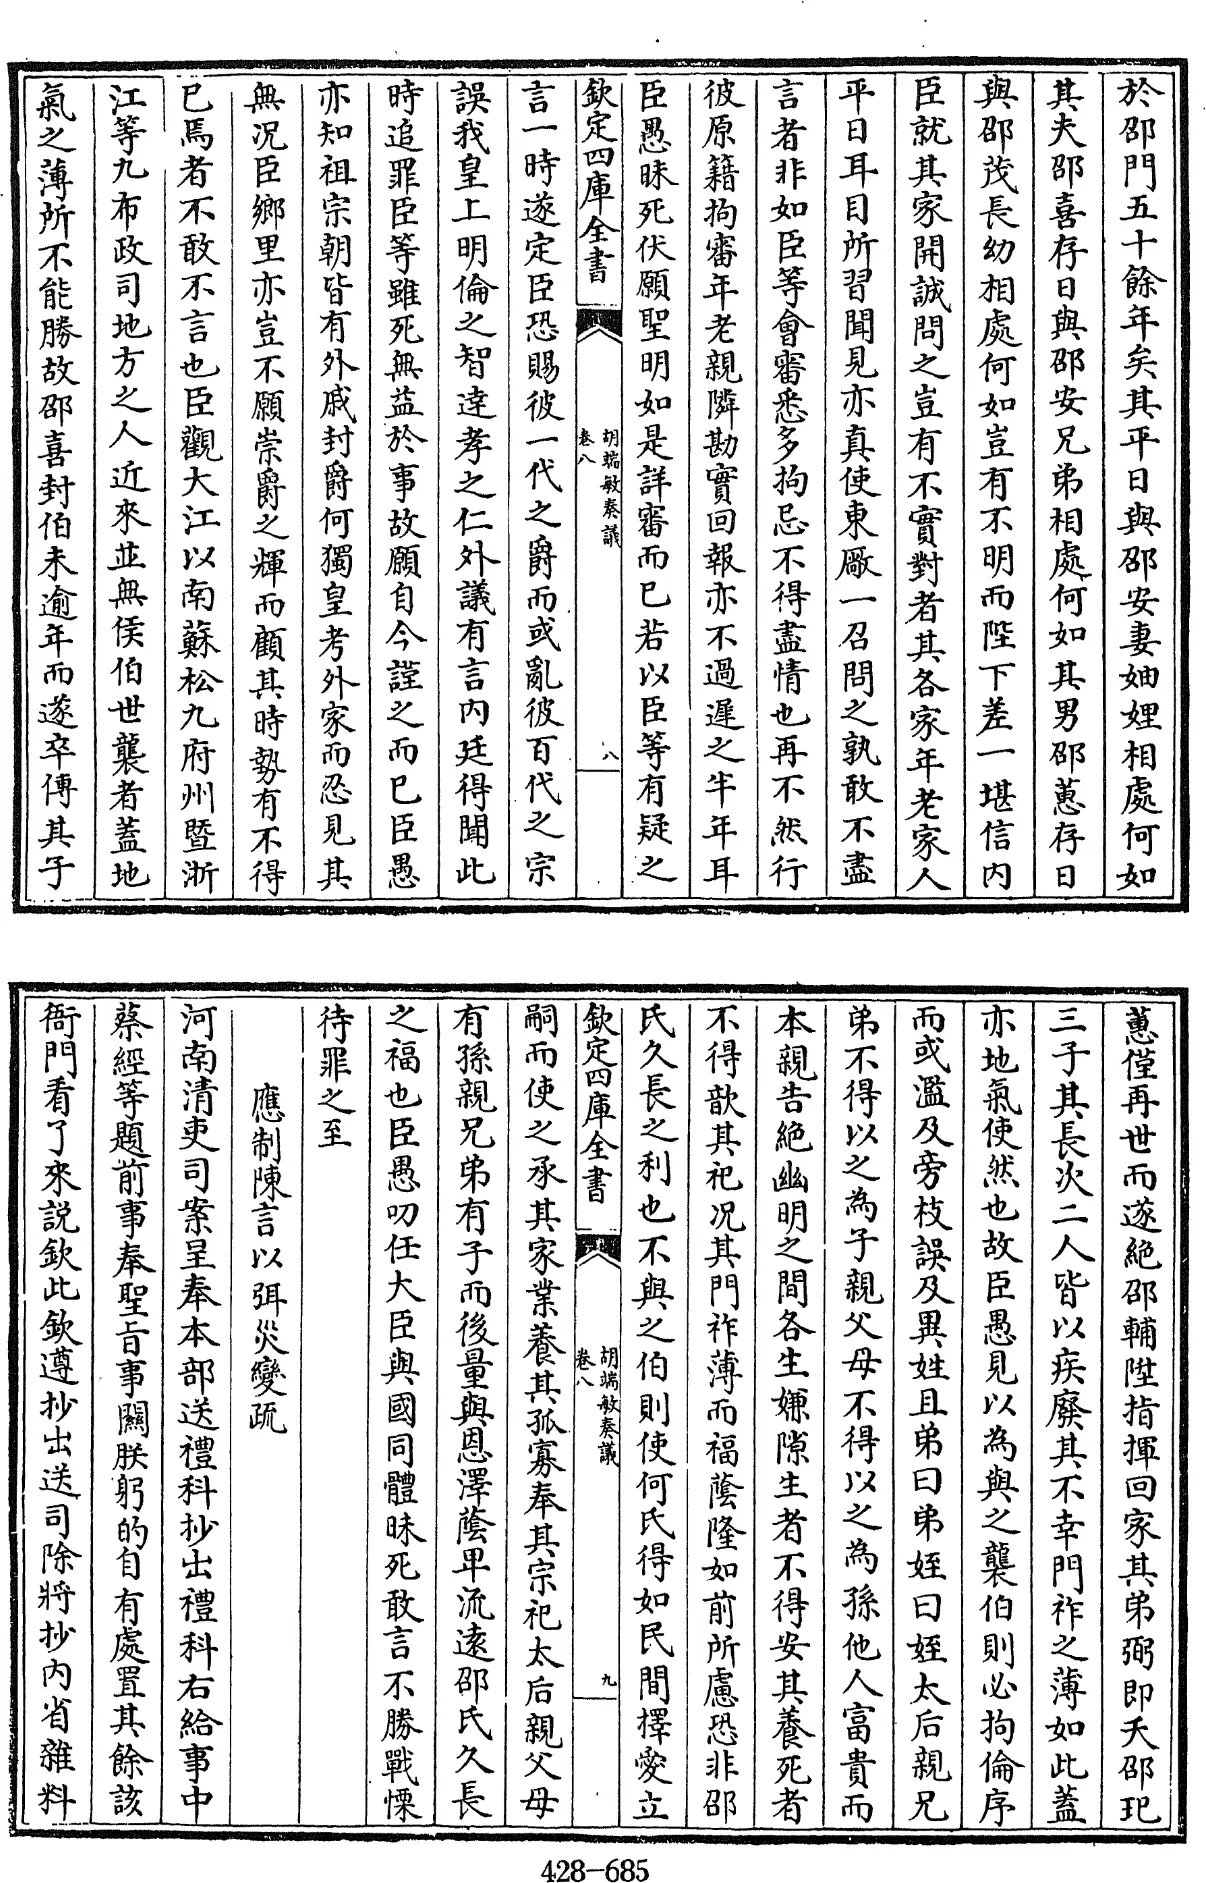 於邵門五十餘年矣其平日與邵安妻妯娌相處何如
其夫邵喜存日與邵安兄弟相處何如其男邵蕙存日
與邵茂長幼相處何如豈有不明而陛下差一堪信内
臣就其家開誠問之豈有不實對者其各家年老家人
平日耳目所習聞見亦真使東厰一召問之孰敢不盡
言者非如臣等會審悉多拘忌不得盡情也再不然行
彼原籍拘審年老親隣勘實回報亦不過遲之半年耳
臣愚昧死伏願聖明如是詳審而已若以臣等有疑之
欽定四庫全書
胡端敏奏議
卷八
八
言一時遂定臣恐賜彼一代之爵而或亂彼百代之宗
誤我皇上明倫之智達孝之仁外議有言内廷得聞此
時追罪臣等雖死無益於事故願自今謹之而已臣愚
亦知祖宗朝皆有外戚封爵何獨皇考外家而忍見其
無況臣鄉里亦豈不願崇爵之輝而顧其時勢有不得
已焉者不敢不言也臣觀大江以南蘇松九府州暨浙
江等九布政司地方之人近來並無侯伯世襲者蓋地
氣之薄所不能勝故邵喜封伯未逾年而遂卒傳其子
蕙僅再世而遂絶邵輔陞指揮回家其弟弼即夭邵玘
三子其長次二人皆以疾廢其不幸門祚之薄如此蓋
亦地氣使然也故臣愚見以為與之襲伯則必拘倫序
而或濫及旁枝誤及異姓且弟曰弟姪曰姪太后親兄
弟不得以之為子親父母不得以之為孫他人富貴而
本親告絶幽明之間各生嫌隙生者不得安其養死者
不得歆其祀況其門祚薄而福蔭隆如前所慮恐非邵
氏久長之利也不與之伯則使何氏得如民間擇愛立
欽定四庫全書
胡端敏奏議
卷八
九
嗣而使之承其家業養其孤寡奉其宗祀太后親父母
有孫親兄弟有子而後量與恩澤蔭卑流遠邵氏久長
之福也臣愚叨任大臣與國同體昧死敢言不勝戰慄
待罪之至
應制陳言以弭災變疏
河南清吏司案呈奉本部送禮科抄出禮科右給事中
蔡經等題前事奉聖旨事關朕躬的自有處置其餘該
衙門看了來說欽此欽遵抄出送司除將抄内省雜料
428-685